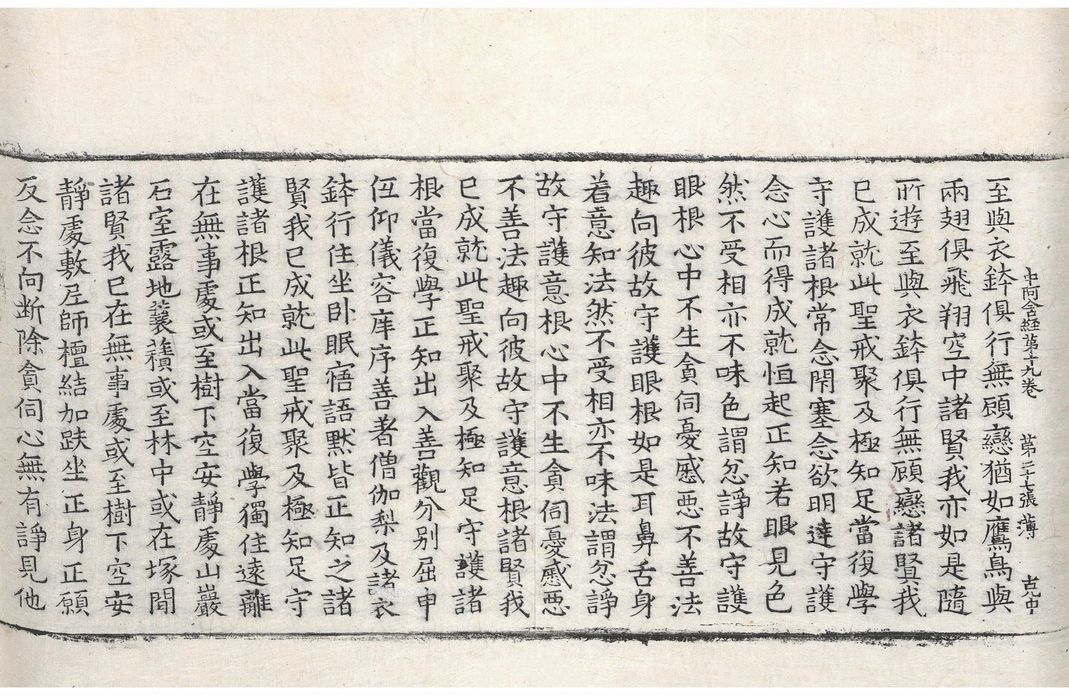 中阿含経第十九卷 第二十七張 薄 克中
至與衣鉢俱行無顧戀猶如鷹鳥與
兩翅俱飛翔空中諸賢我亦如是隨
所遊至與衣鉢俱行無顧戀諸賢我
已成就此聖戒聚及極知足當復學
守護諸根常念閇塞念欲明達守護
念心而得成就恒起正知若眼見色
然不受相亦不味色謂忿諍故守護
眼根心中不生貪伺憂慼悪不善法
趣向彼故守護眼根如是耳鼻舌身
着意知法然不受相亦不味法謂忿諍
故守護意根心中不生貪伺憂慼悪
不善法趣向彼故守護意根諸賢我
已成就此聖戒聚及極知足守護諸
根當復學正知出入善觀分別屈申
伍仰儀容庠序善著僧伽梨及諸衣
鉢行住坐卧眠寤語默皆正知之諸
賢我已成就此聖戒聚及極知足守
護諸根正知出入當復學獨住遠離
在無事處或至樹下空安靜處山巖
石室露地蘘䕸或至林中或在塚間
諸賢我已在無事處或至樹下空安
靜處敷尼師檀結加趺坐正身正願
反念不向断除貪伺心無有諍見他